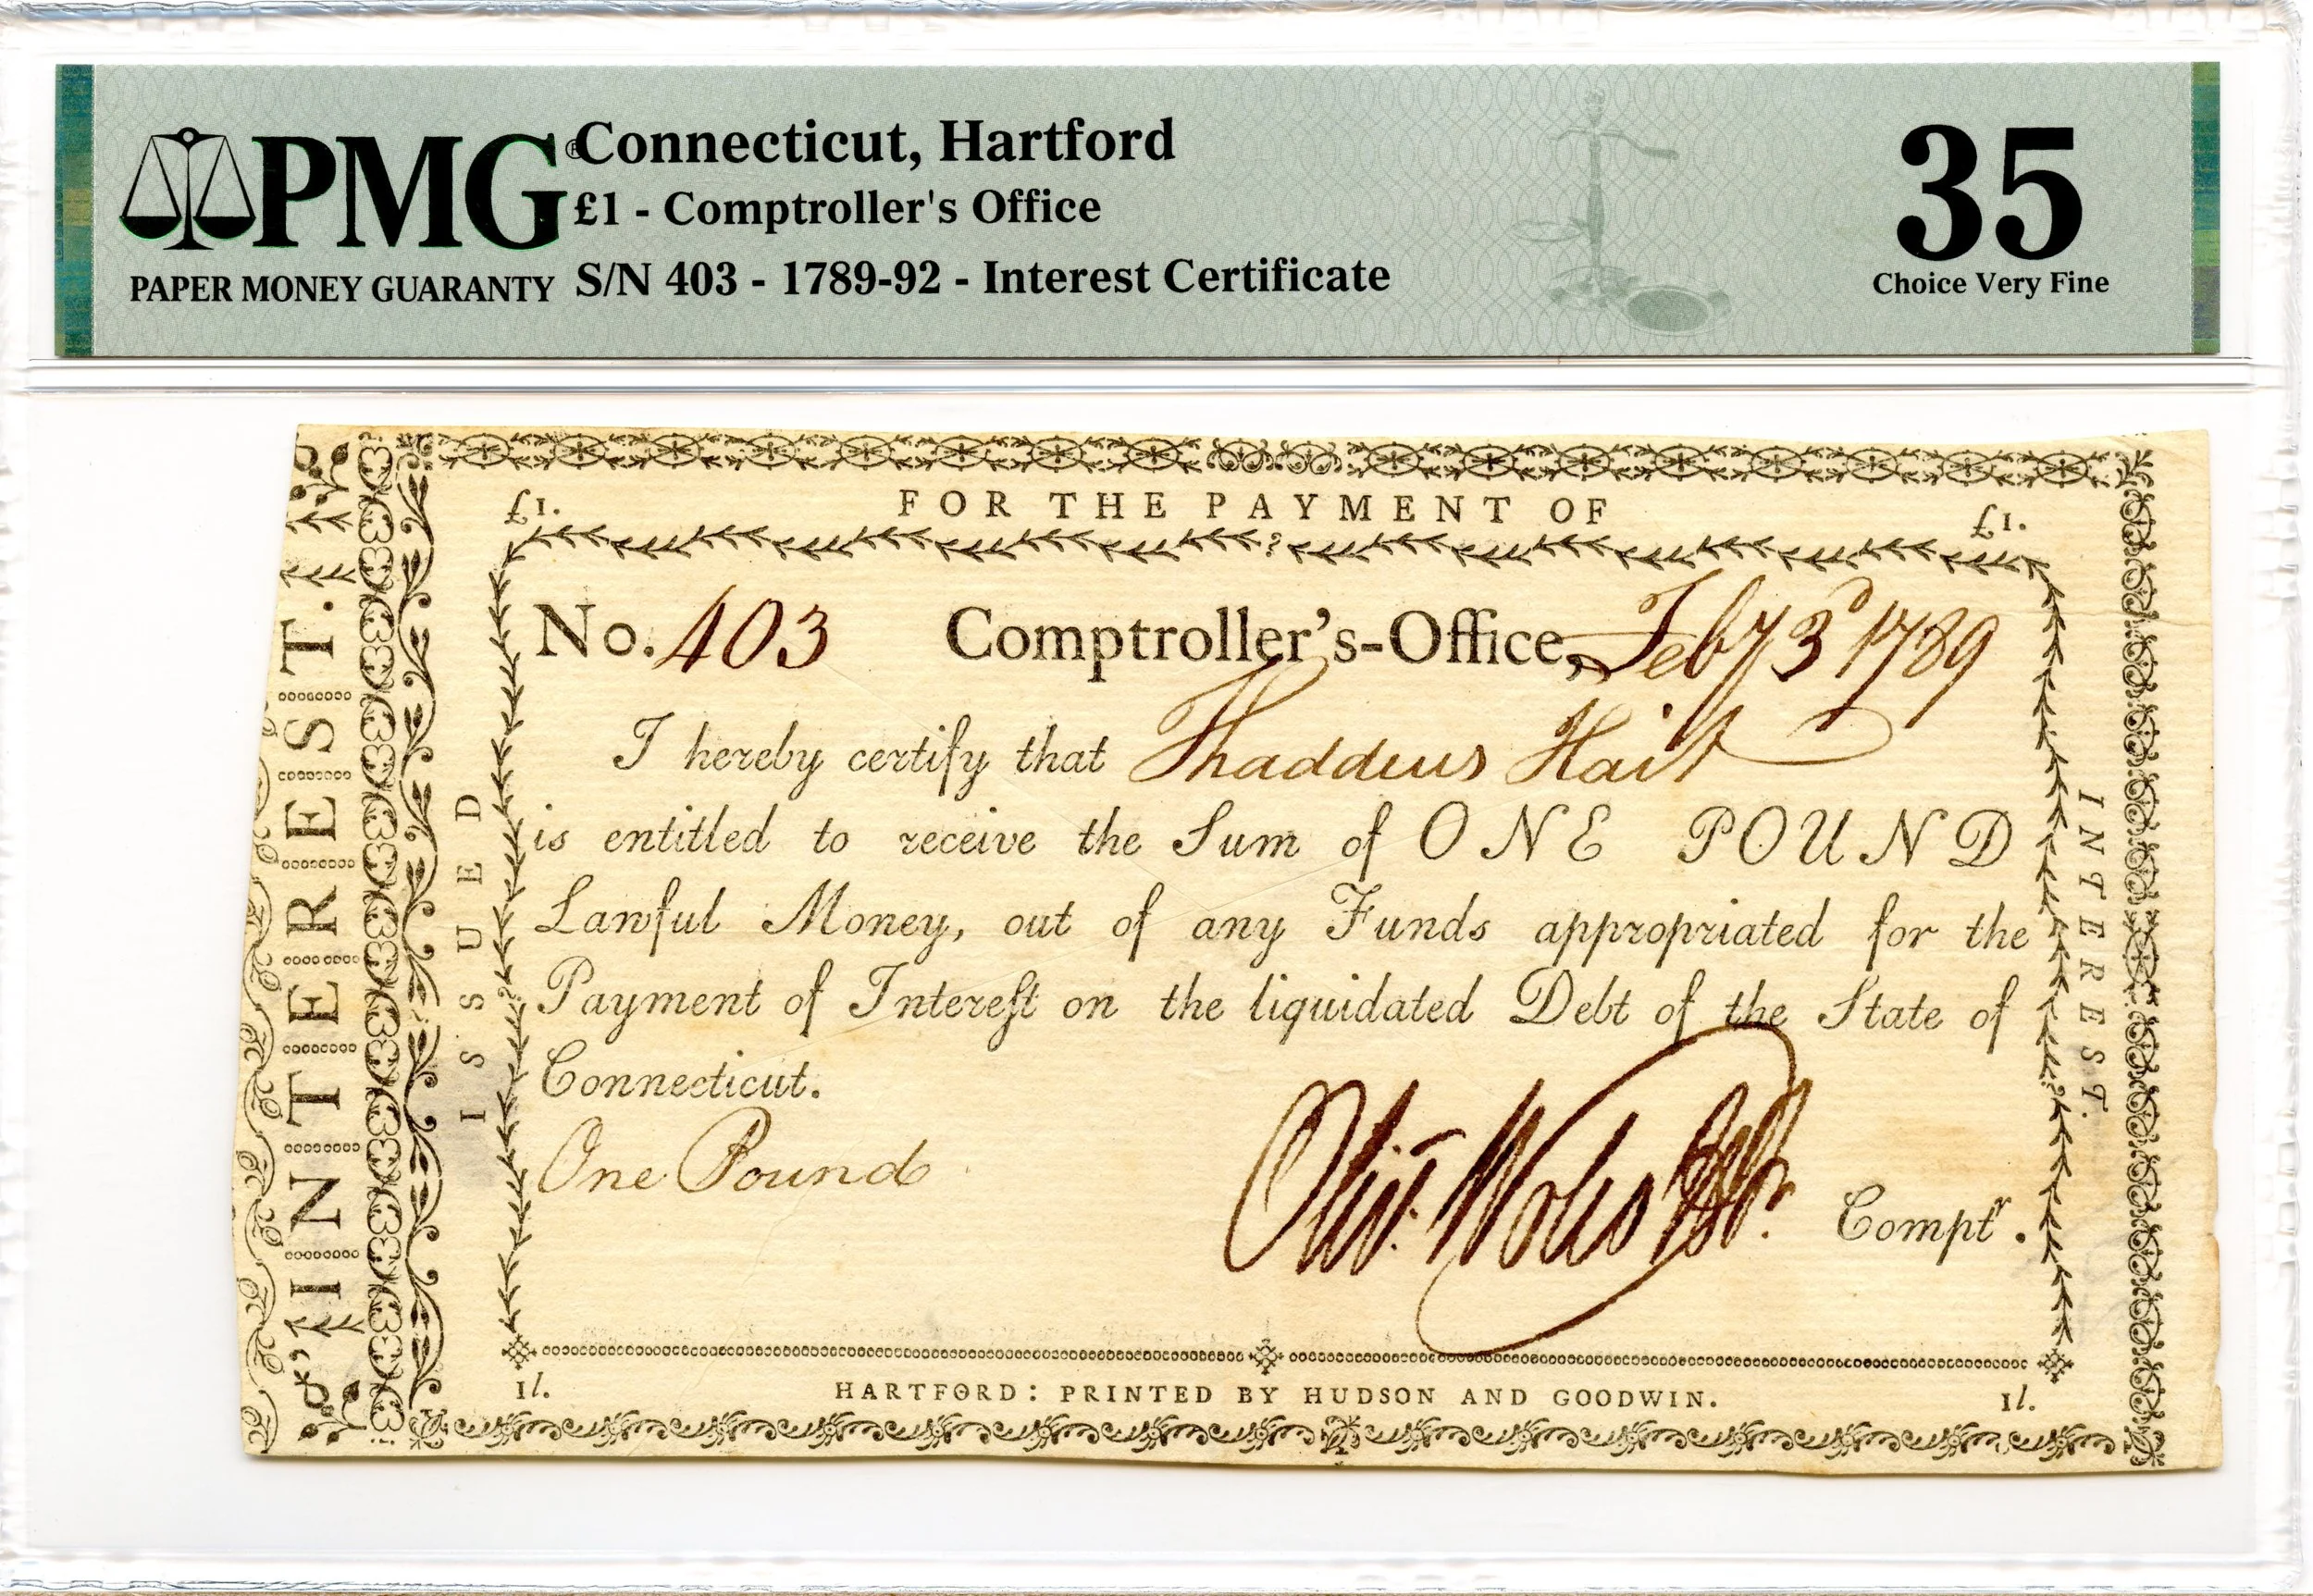 PMG®
PAPER MONEY GUARANTY
Connecticut, Hartford
£1 - Comptroller's Office
S/N 403 - 1789-92 - Interest Certificate
35
Choice Very Fine
INTEREST.
FOR THE PAYMENT OF
£1.
£1.
ISSUED
INTEREST.
No. 403 Comptroller's-Office, Feby 3d 1789
I hereby certify that Thaddeus Hait
is entitled to receive the Sum of ONE POUND
Lawful Money, out of any Funds appropriated for the
Payment of Intereſt on the liquidated Debt of the State of
Connecticut.
One Pound
Olivr Wolcott Jr. Comptr.
1l. HARTFORD: PRINTED BY HUDSON AND GOODWIN. 1l.